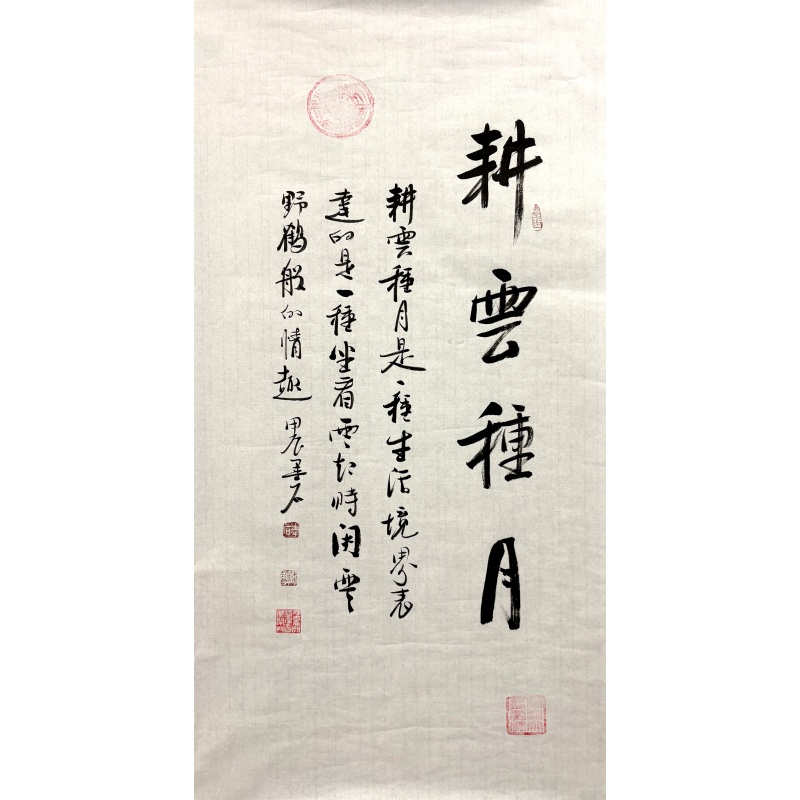 耕雲種月
耕雲種月是一種生活境界表
達的是一種坐看雲起時閑雲
野鶴般的情趣 甲辰墨石